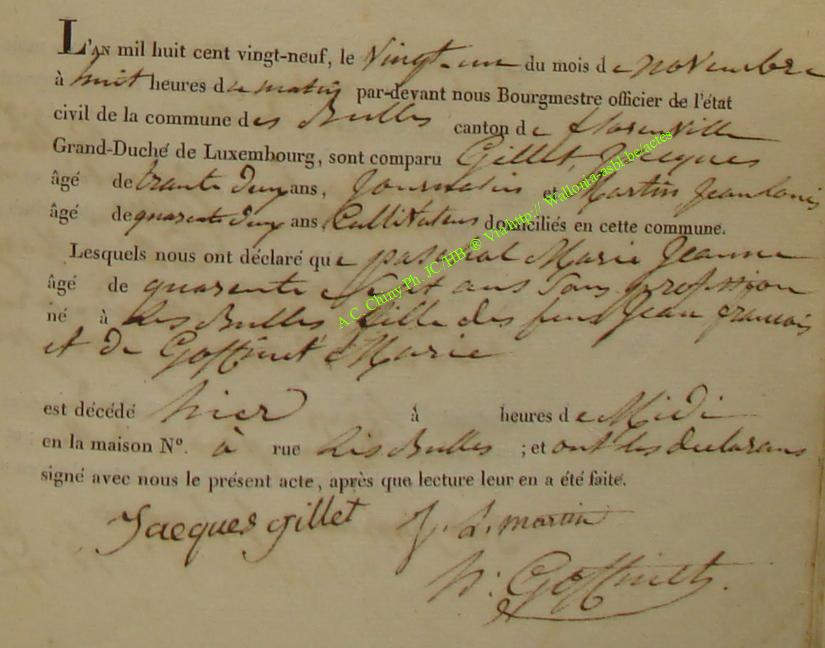 L'AN mil huit cent vingt-neuf, le vingt-un du mois de novembre
à huit heures de matin par-devant nous Bourgmestre officier de l'état
civil de la commune des Bulles canton de florenville
Grand-Duché de Luxembourg, sont comparu Gillet, Jacques
âgé de trante deux ans, Journalier et Martin Jean louis
âgé de quarente deux ans Cultivateur domiciliés en cette commune.
Lesquels nous ont déclaré que paschal Marie Jeanne
âgé de quarente Sept ans Sans profession
né à Les Bulles fille des feus Jean francois
et de Goffinet Marie
est décédé hier à heures de Midi
en la maison N°. à rue Les Bulles ; et ont les declarans
signé avec nous le présent acte, après que lecture leur en a été faite.
Jacques Gillet J. L. martin
Goffinet.
A C. Chiny Ph. JC/HB ® Via http:// Wallonia-asbl.be/actes